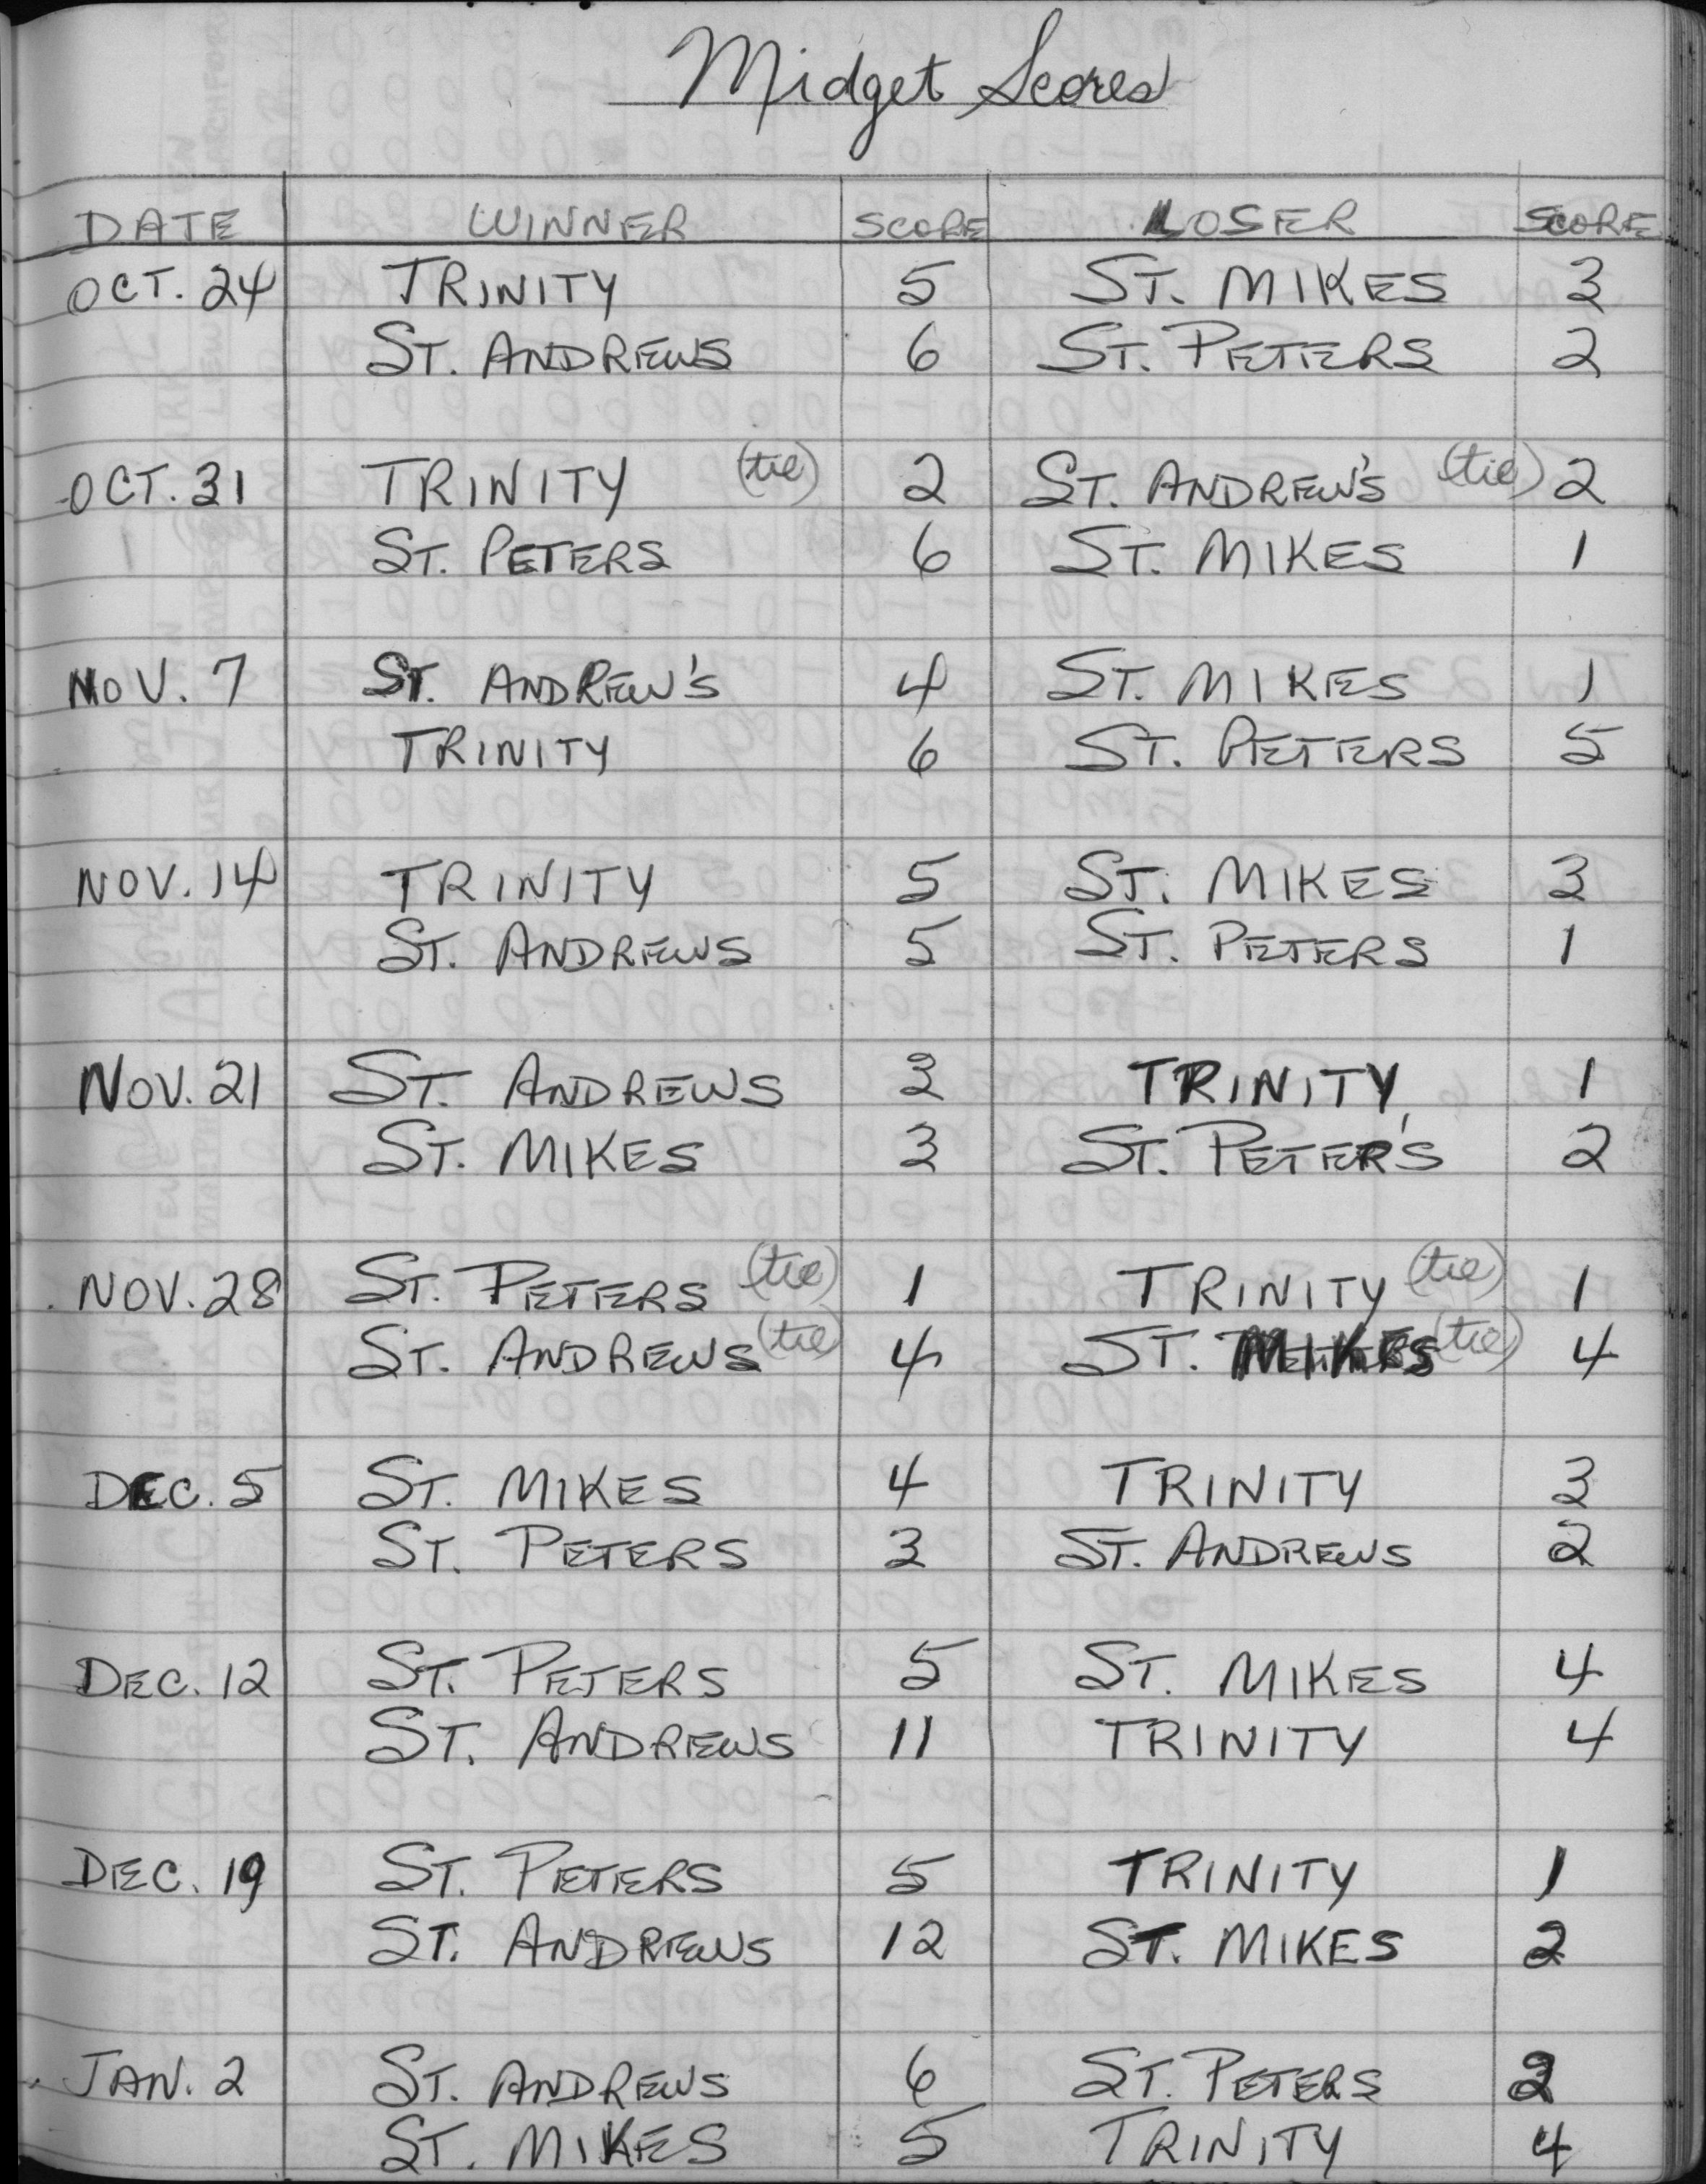 Midget Scores
DATE WINNER SCORE LOSER SCORE
OCT. 24 TRINITY 5 ST. MIKES 3
ST. ANDREWS 6 ST. PETERS 2
OCT. 31 TRINITY (tie) 2 ST. ANDREW'S (tie) 2
ST. PETERS 6 ST. MIKES 1
NOV. 7 ST. ANDREW'S 4 ST. MIKES 1
TRINITY 6 ST. PETERS 5
NOV. 14 TRINITY 5 ST. MIKES 3
ST. ANDREWS 5 ST. PETERS 1
NOV. 21 ST. ANDREWS 3 TRINITY 1
ST. MIKES 3 ST. PETER'S 2
NOV. 28 ST. PETERS (tie) 1 TRINITY (tie) 1
ST. ANDREWS (tie) 4 ST. MIKES (tie) 4
DEC. 5 ST. MIKES 4 TRINITY 3
ST. PETERS 3 ST. ANDREWS 2
DEC. 12 ST. PETERS 5 ST. MIKES 4
ST. ANDREWS 11 TRINITY 4
DEC. 19 ST. PETERS 5 TRINITY 1
ST. ANDREWS 12 ST. MIKES 2
JAN. 2 ST. ANDREWS 6 ST. PETERS 2
ST. MIKES 5 TRINITY 4